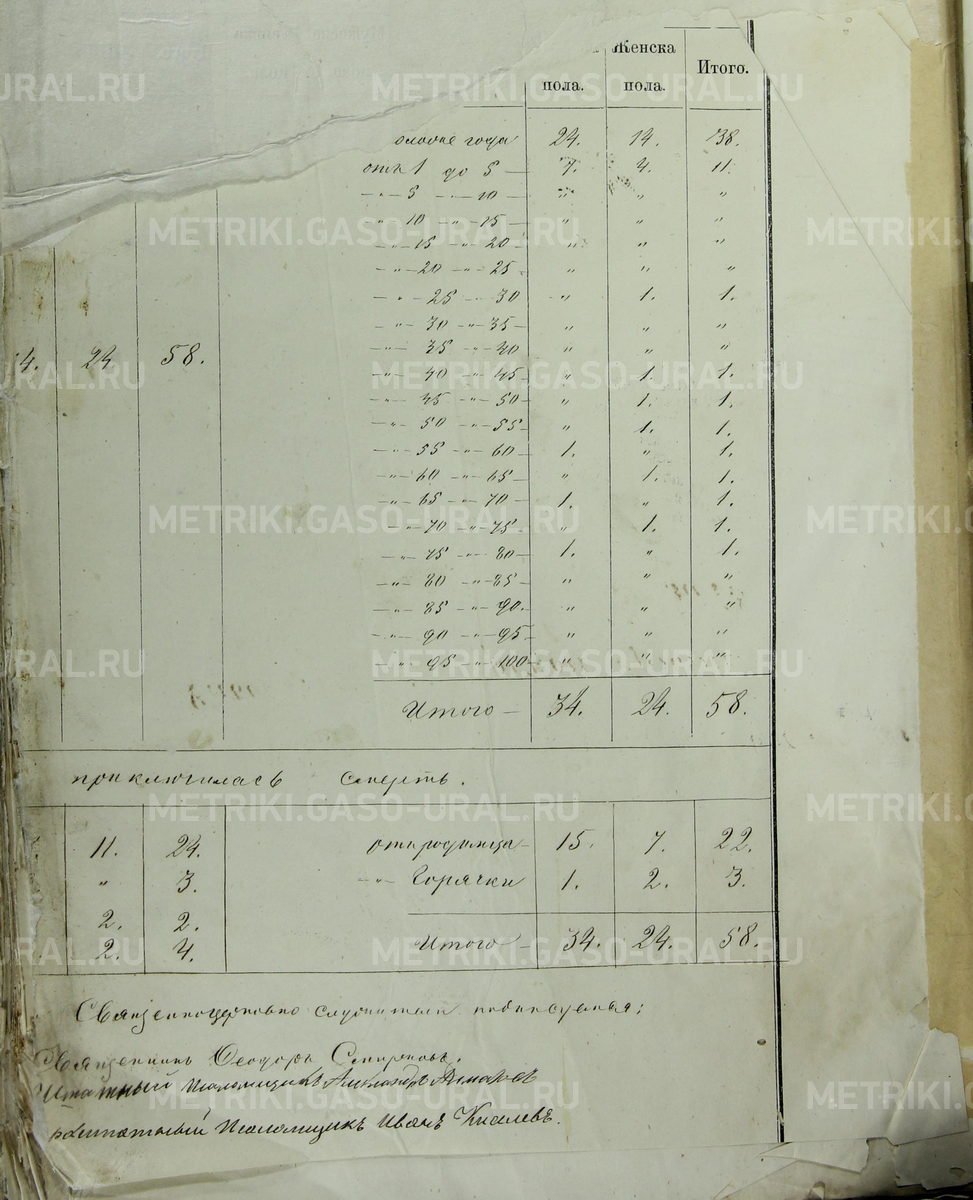 Женска
пола. пола. Итого.
моложе года 24. 14. 38.
отъ 1 до 5 — 7. 4. 11.
— „ — 5 — „ — 10 — „ „ „
— „ — 10 — „ — 15 — „ „ „
— „ — 15 — „ — 20 — „ „ „
— „ — 20 — „ — 25 „ „ „
— „ — 25 — „ — 30 „ 1. 1.
— „ — 30 — „ — 35 — „ „ „
4. 24 58. — „ — 35 — „ — 40 „ „ „
— „ — 40 — „ — 45 — „ 1. 1.
— „ — 45 — „ — 50 — „ 1. 1.
— „ — 50 — „ — 55 „ 1. 1.
— „ — 55 — „ — 60 — 1. „ 1.
— „ — 60 — „ — 65 — „ 1. 1.
— „ — 65 — „ — 70 — 1. „ 1.
— „ — 70 — „ — 75 „ 1. 1.
— „ — 75 — „ — 80 — 1. „ 1.
— „ — 80 — „ — 85 „ „ „
— „ — 85 — „ — 90. „ „ „
— „ — 90 — „ — 95 — „ „ „
— „ — 95 — „ — 100 — „ „ „
Итого — 34. 24. 58.
приключилась смерть.
11. 24. отъ родимца — 15. 7. 22.
„ 3. — „ — Горячки 1. 2. 3.
2. 2.
2. 4. Итого — 34. 24. 58.
Священноцерковно служители подписуемыя:
Священникъ Феодоръ Смирновъ.
Штатный псаломщикъ Александръ
псаломщикъ Иванъ Киселевъ.
METRIKI.GASO-URAL.RU